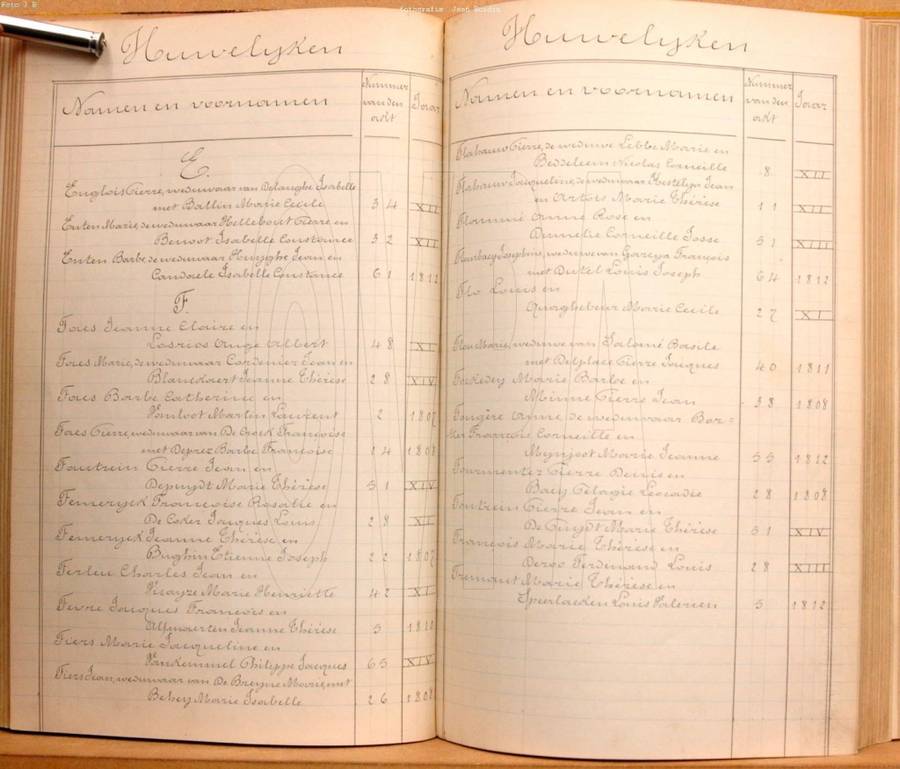 Foto J B
fotografie Jean
Huwelyken
Namen en voornamen Nummer van den akt Jaar
E.
Englois Pierre, weduwaar van Delanghe Isabelle
met Ballin Marie Cecile 34 XII
Enten Marie, de weduwaar Hellebout Pierre en
Benoot Isabelle Constance 32 XII
Enten Barbe, de weduwaar Jean en
Candaele Isabelle Constance 61 1812
F.
Faes Jeanne Claire en
Losrios Ange Albert 48 XI
Faes Marie, de weduwaar Cordenier Jean en
Blanckaert Jeanne Thérèse 28 XIV
Faes Barbe Catherine en
Vanloot Martin Laurent 2 1807
Faes Pierre, weduwaar van De Croek Françoise
met Deprez Barbe Françoise 14 1808
Fautrein Pierre Jean en
Depuydt Marie Thérèse 51 XIV
Femeryck Françoise Rosalie en
De Coker Jacques Louis 28 XII
Femeryck Jeanne Thérèse en
Baghin Etienne Joseph 22 1807
Ferleu Charles Jean en
Marie Henriette 42 XI
Fevre Jacques François en
Jeanne Thérèse 5 1812
Fiers Marie Jacqueline en
Vankemmel Philippe Jacques 65 XIV
Fiers Jean, weduwaar van De Bruyne Marie, met
Behey Marie Isabelle 26 1808
Huwelyken
Namen en voornamen Nummer van den akt Jaar
Flahauw Pierre, de weduwe Lebbe Marie en
Bedeleem Nicolas Corneille 8 XII
Flahauw Jacqueline, de weduwaar Hestelyn Jean
en Artois Marie Thérèse 11 XII
Anne Rose en
Corneille Josse 51 XIII
Josephine, weduwe van François
met Dutel Louis Joseph 64 1812
Flo Louis en
Quaghebeur Marie Cecile 27 XI
Marie, weduwe van Salomé Basile
met Delplace Pierre Jacques 40 1811
Forkedey Marie Barbe en
Minne Pierre Jean 38 1808
Fougère Anne, de weduwaar Bor-
tier François Corneille en
Mynjoot Marie Jeanne 55 1812
Fourmentez Pierre Denis en
Baey Pélagie Leocadie 28 1808
Foutrein Pierre Jean en
De Puydt Marie Thérèse 51 XIV
François Marie Thérèse en
Deroo Ferdinand Louis 28 XIII
Fremont Marie Thérèse en
Speelaeden Louis Valerien 5 1812